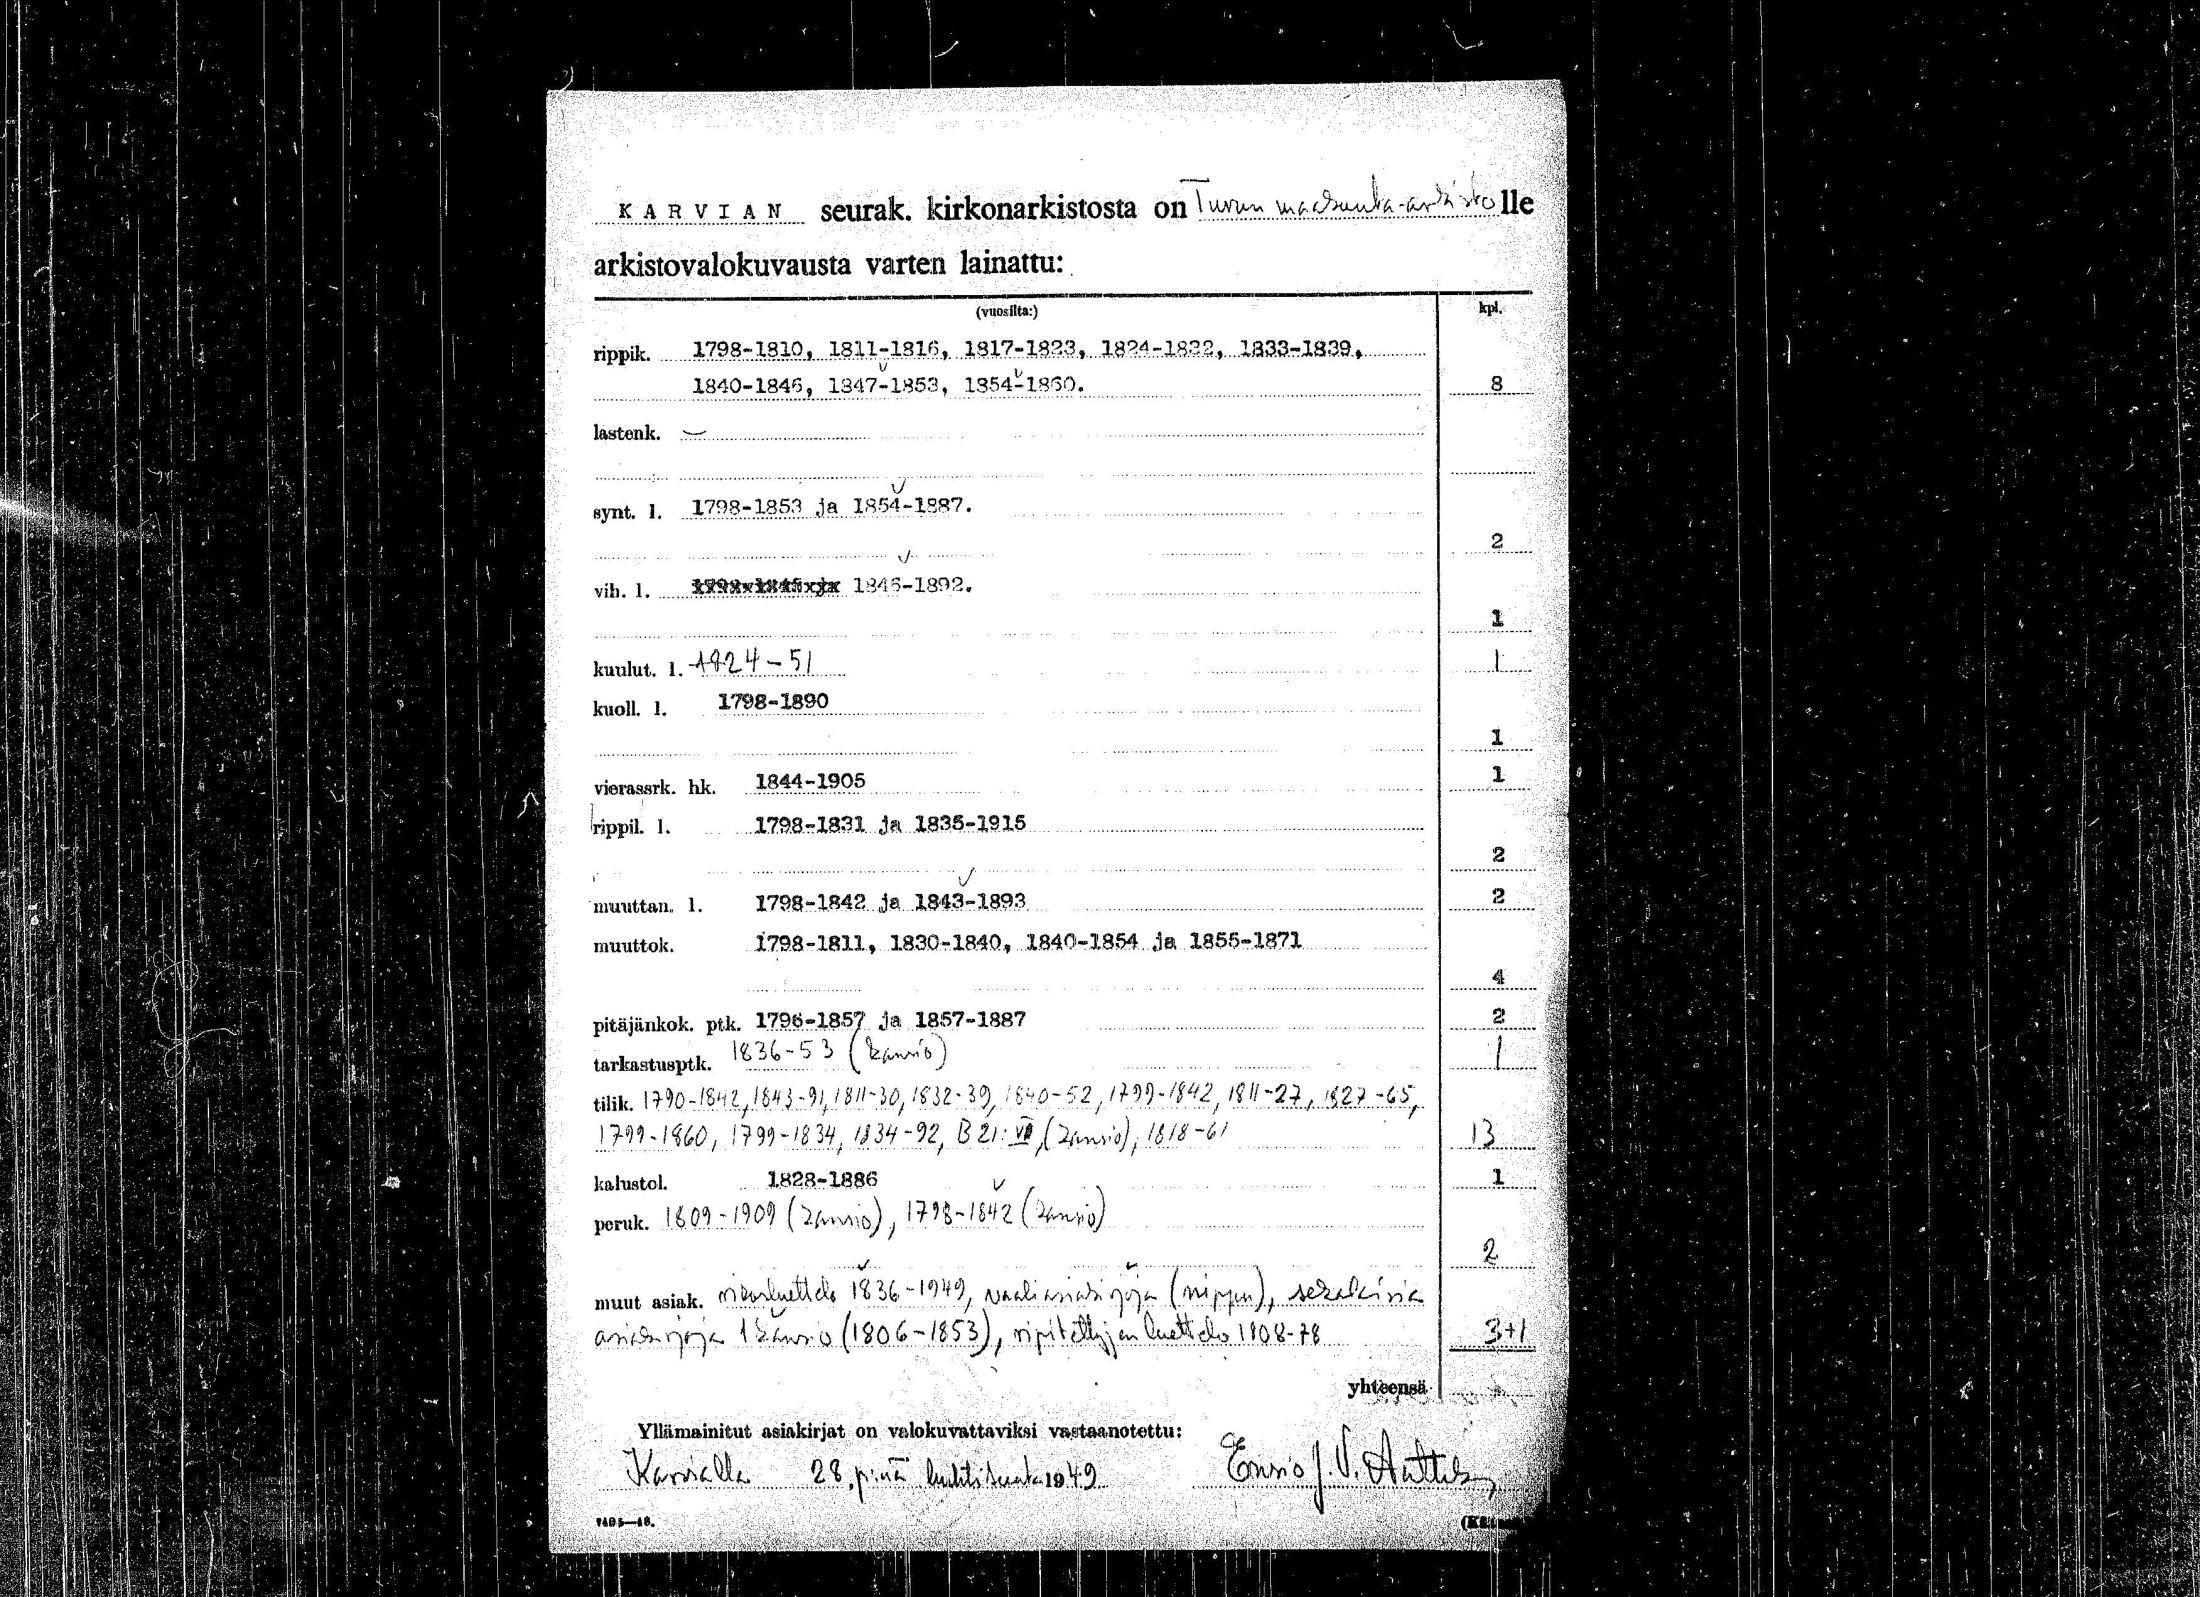 KARVIAN seurak. kirkonarkistosta on Turun maakunta-arkistolle
arkistovalokuvausta varten lainattu:
(vuosilta:) kpl.
rippik. 1798-1810, 1811-1816, 1817-1823, 1824-1832, 1833-1839,
1840-1846, 1847-1853, 1854-1860. 8
lastenk. —
synt. l. 1798-1853 ja 1854-1887.
2
vih. l. 1846-1892.
1
kuulut. l. 1824-51 1
kuoll. l. 1798-1890
1
vierassrk. hk. 1844-1905 1
rippil. l. 1798-1831 ja 1835-1915
2
muuttan. l. 1798-1842 ja 1843-1893 2
muuttok. 1798-1811, 1830-1840, 1840-1854 ja 1855-1871
4
pitäjänkok. ptk. 1796-1857 ja 1857-1887 2
tarkastusptk. 1836-53 (kansio) 1
tilik. 1790-1842, 1843-91, 1811-30, 1832-39, 1840-52, 1799-1842, 1811-27, 1827-65,
1799-1860, 1799-1834, 1834-92, B 21: VII, (kansio), 1818-61 13
kalustol. 1828-1886 1
peruk. 1809-1909 (kansio), 1798-1842 (kansio)
2
muut asiak. 1836-1949, vaaliasiakirjoja (nippu), sekalaisia
asiakirjoja 1 kansio (1806-1853), ripitettyjen luettelo 1808-78 3+1
yhteensä
Yllämainitut asiakirjat on valokuvattaviksi vastaanotettu:
Karvialla 28 p:nä huhtikuuta 1949 Ensio J. V.